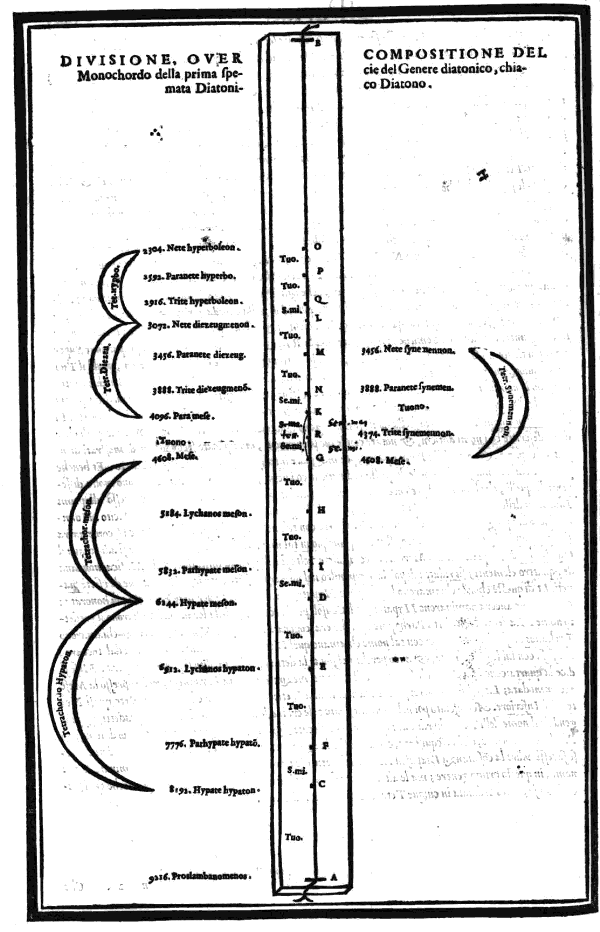 DIVISIONE, OVER
Monochordo della prima spe-
mata Diatoni-
COMPOSITIONE DEL
cie del Genere diatonico, chia-
co Diatono.
B
2304. Nete hyperboleon.
O
Tuo.
2592. Paranete hyperbo.
P
Tuo.
2916. Trite hyperboleon.
Q
S.mi.
3072. Nete diezeugmenon.
L
Tuo.
3456. Paranete diezeug.
M
3456. Nete synemennon.
Tuo.
3888. Trite diezeugmenō.
N
3888. Paranete synemen.
Se.mi.
Tuono.
4096. Paramese.
K
Tuono
R
4374. Trite synemennon.
4608. Mese.
G
4608. Mese.
Tuo.
5184. Lychanos meson.
H
Tuo.
5832. Parhypate meson.
I
Se.mi.
6144. Hypate meson.
D
Tuo.
6912. Lychanos hypaton.
E
Tuo.
7776. Parhypate hypatō.
F
S.mi.
8192. Hypate hypaton.
C
Tuo.
9216. Proslambanomenos.
A
Tet. hypbo.
Tetr. Diezeu.
Tetrachor. meson.
Tetrachordo Hypaton.
Tetr. Synemennon.